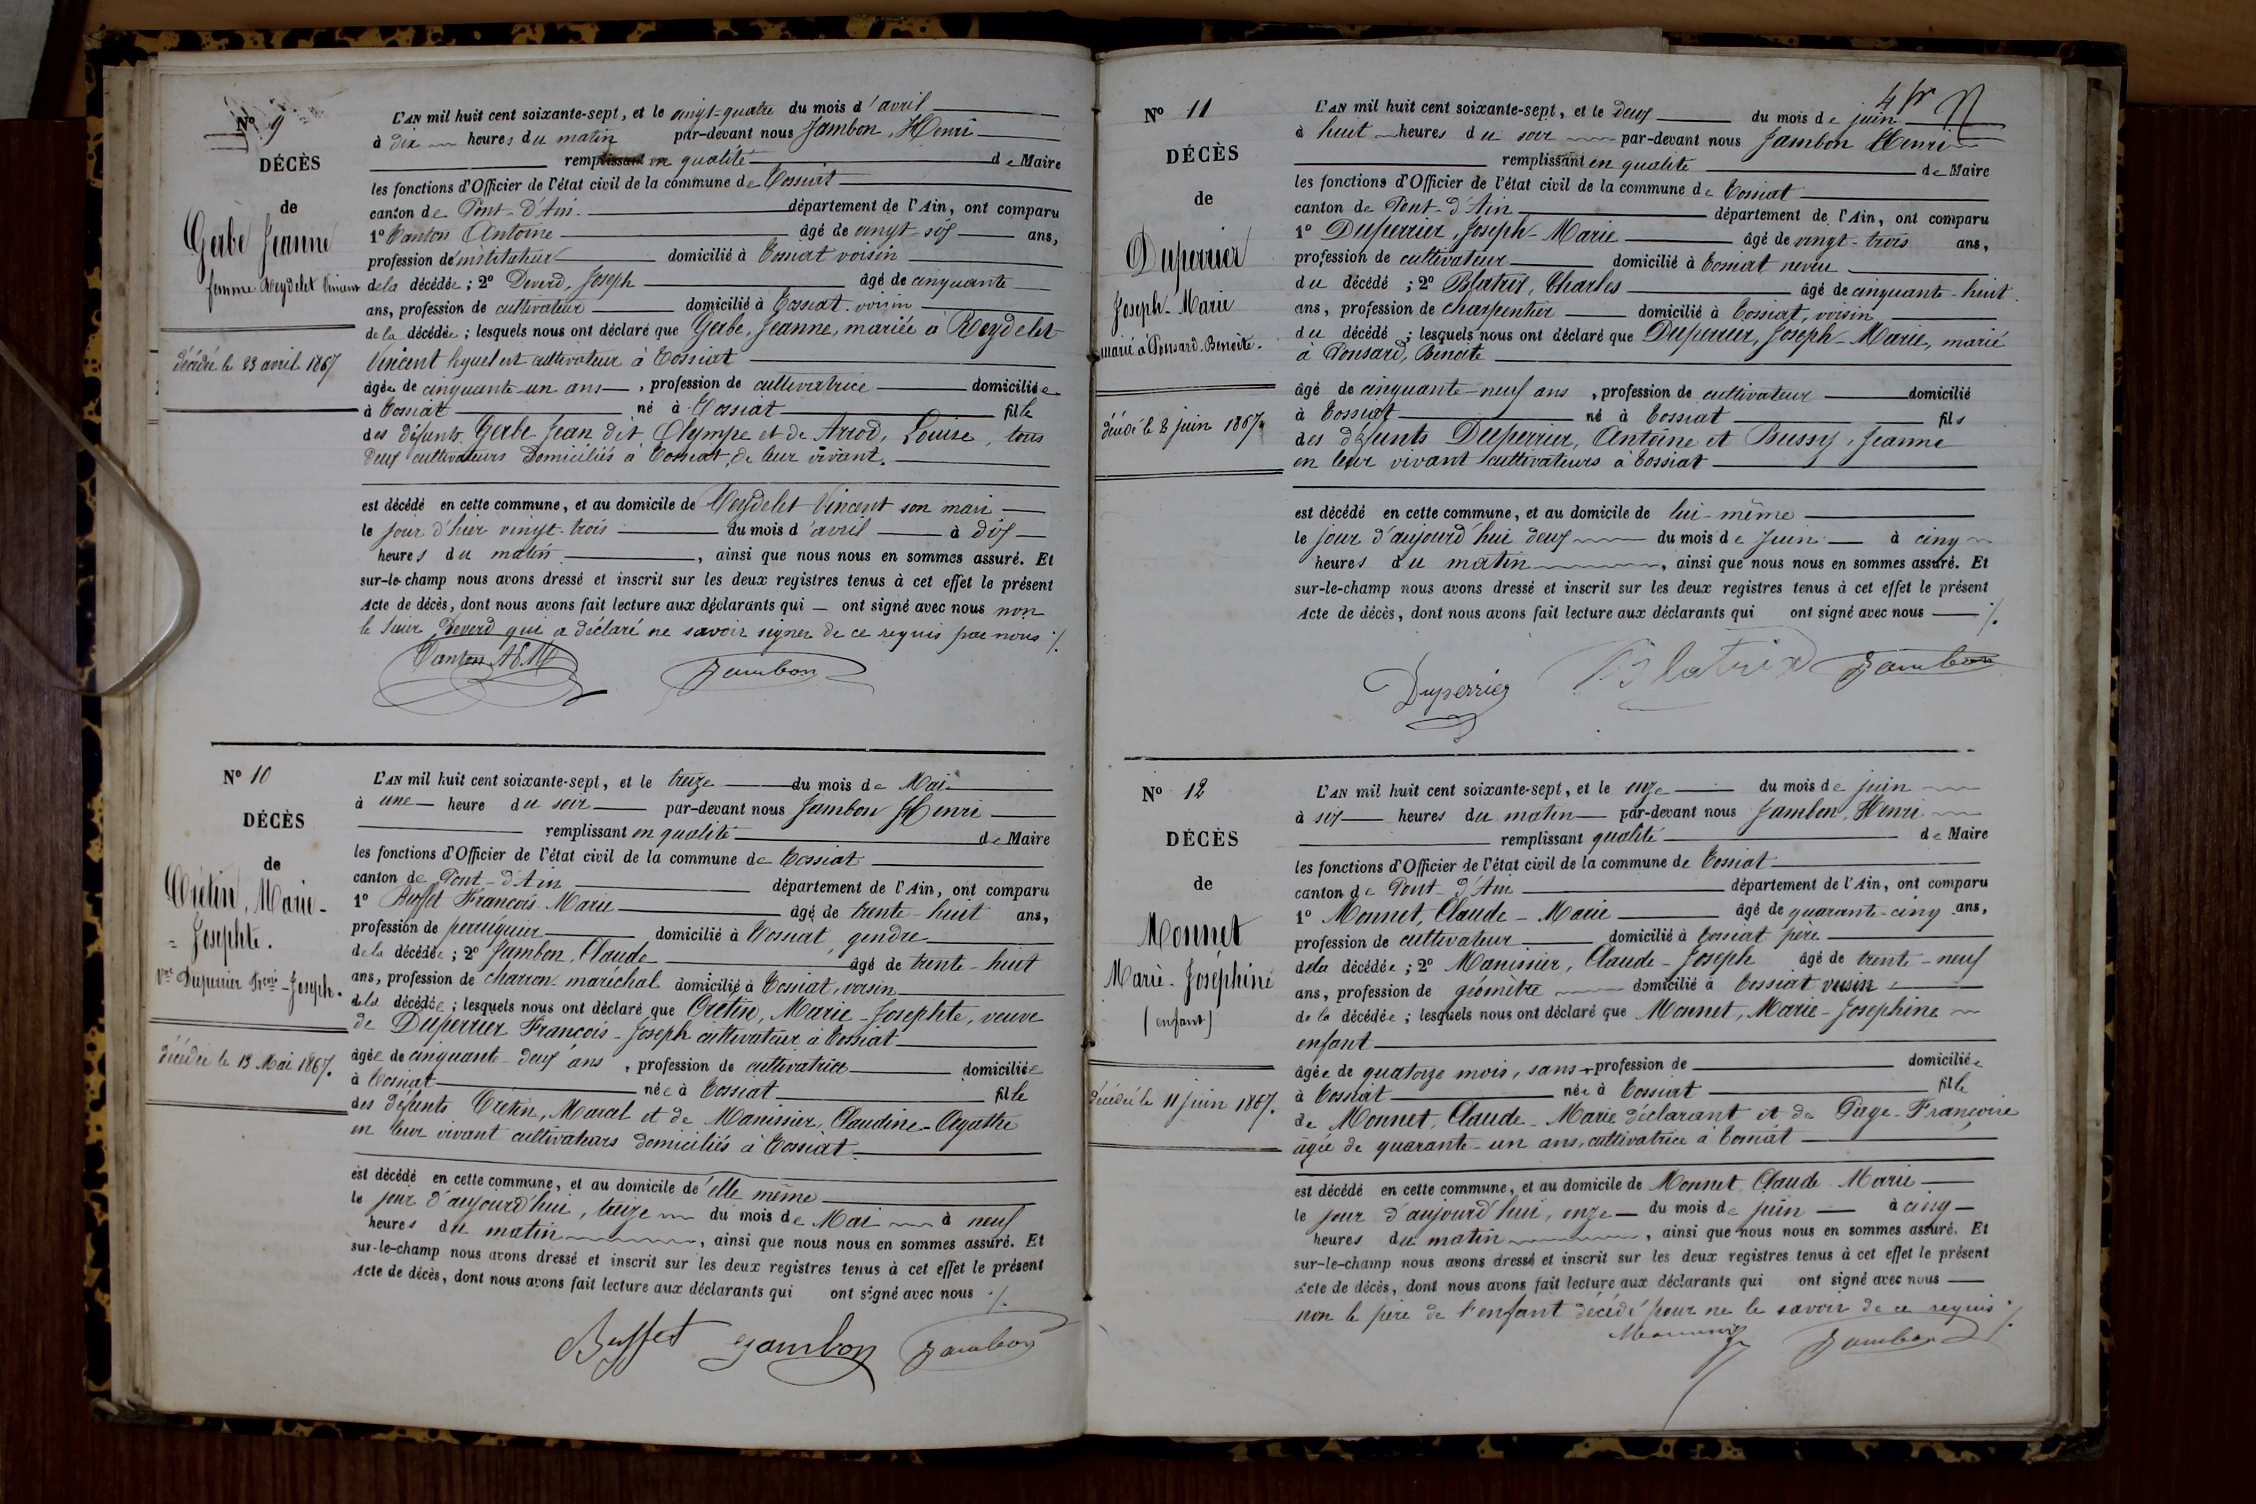 Nº 9
DÉCÈS
de
Gerbe Jeanne
femme Reydelet Vincent
décédée le 23 avril 1867
L'AN mil huit cent soixante-sept, et le vingt-quatre du mois d'avril
à dix heures du matin par-devant nous Jambon, Henri
remplissant en qualité de Maire
les fonctions d'Officier de l'état civil de la commune de Tossiat
canton de Pont-d'Ain département de l'Ain, ont comparu
1º Tanton Antoine âgé de vingt-six ans,
profession de instituteur domicilié à Tossiat voisin
de la décédée ; 2º Deverd, Joseph âgé de cinquante
ans, profession de cultivateur domicilié à Tossiat voisin
de la décédée ; lesquels nous ont déclaré que Gerbe, Jeanne, mariée à Reydelet
Vincent lequel est cultivateur à Tossiat
âgée de cinquante un ans, profession de cultivatrice domiciliée
à Tossiat né à Tossiat fille
des défunts Gerbe Jean dit Olympe et de Arrod, Louise, tous
deux cultivateurs domiciliés à Tossiat, de leur vivant.
est décédé en cette commune, et au domicile de Reydelet Vincent son mari
le jour d'hier vingt-trois du mois d'avril à dix
heures du matin, ainsi que nous nous en sommes assuré. Et
sur-le-champ nous avons dressé et inscrit sur les deux registres tenus à cet effet le présent
Acte de décès, dont nous avons fait lecture aux déclarants qui ont signé avec nous non
le sieur Deverd qui a déclaré ne savoir signer de ce requis par nous
Jambon
Nº 10
DÉCÈS
de
Crétin, Marie-
Josephte.
Vve Duperrier Fcois-Joseph.
décédée le 13 Mai 1867.
L'AN mil huit cent soixante-sept, et le treize du mois de Mai
à une heure du soir par-devant nous Jambon Henri
remplissant en qualité de Maire
les fonctions d'Officier de l'état civil de la commune de Tossiat
canton de Pont-d'Ain département de l'Ain, ont comparu
1º Buffet François-Marie âgé de trente-huit ans,
profession de perruquier domicilié à Tossiat, gendre
de la décédée ; 2º Jambon, Claude âgé de trente-huit
ans, profession de charron-maréchal domicilié à Tossiat, voisin
de la décédée ; lesquels nous ont déclaré que Crétin, Marie-Josephte, veuve
de Duperrier François-Joseph cultivateur à Tossiat
âgée de cinquante-deux ans, profession de cultivatrice domiciliée
à Tossiat née à Tossiat fille
des défunts Crétin, Marcel et de Manissier, Claudine-Agathe
en leur vivant cultivateurs domiciliés à Tossiat.
est décédé en cette commune, et au domicile de elle même
le jour d'aujourd'hui, treize du mois de Mai à neuf
heures du matin, ainsi que nous nous en sommes assuré. Et
sur-le-champ nous avons dressé et inscrit sur les deux registres tenus à cet effet le présent
Acte de décès, dont nous avons fait lecture aux déclarants qui ont signé avec nous
Buffet Jambon Jambon
Nº 11
DÉCÈS
de
Duperrier
Joseph-Marie
marié à Ponsard, Benoîte.
décédé le 2 juin 1867.
L'AN mil huit cent soixante-sept, et le deux du mois de juin
à huit heures du soir par-devant nous Jambon Henri
remplissant en qualité de Maire
les fonctions d'Officier de l'état civil de la commune de Tossiat
canton de Pont-d'Ain département de l'Ain, ont comparu
1º Duperrier, Joseph-Marie âgé de vingt-trois ans,
profession de cultivateur domicilié à Tossiat neveu
du décédé ; 2º Blatrix, Charles âgé de cinquante-huit
ans, profession de charpentier domicilié à Tossiat, voisin
du décédé ; lesquels nous ont déclaré que Duperrier, Joseph-Marie, marié
à Ponsard, Benoîte
âgé de cinquante-neuf ans, profession de cultivateur domicilié
à Tossiat né à Tossiat fils
des défunts Duperrier, Antoine et Bussy, Jeanne
en leur vivant cultivateurs à Tossiat
est décédé en cette commune, et au domicile de lui-même
le jour d'aujourd'hui deux du mois de Juin à cinq
heures du matin, ainsi que nous nous en sommes assuré. Et
sur-le-champ nous avons dressé et inscrit sur les deux registres tenus à cet effet le présent
Acte de décès, dont nous avons fait lecture aux déclarants qui ont signé avec nous
Duperrier Blatrix Jambon
Nº 12
DÉCÈS
de
Monnet
Marie-Joséphine
(enfant)
décédée le 11 juin 1867.
L'AN mil huit cent soixante-sept, et le onze du mois de juin
à six heures du matin par-devant nous Jambon, Henri
remplissant qualité de Maire
les fonctions d'Officier de l'état civil de la commune de Tossiat
canton de Pont-d'Ain département de l'Ain, ont comparu
1º Monnet, Claude-Marie âgé de quarante-cinq ans,
profession de cultivateur domicilié à Tossiat père
de la décédée ; 2º Manissier, Claude-Joseph âgé de trente-neuf
ans, profession de géomètre domicilié à Tossiat voisin
de la décédée ; lesquels nous ont déclaré que Monnet, Marie-Josephine
enfant
âgée de quatorze mois, sans profession de domiciliée
à Tossiat née à Tossiat fille
de Monnet, Claude-Marie déclarant et de Page-Françoise
âgée de quarante-un ans, cultivatrice à Tossiat
est décédé en cette commune, et au domicile de Monnet Claude Marie
le jour d'aujourd'hui, onze du mois de juin à cinq
heures du matin, ainsi que nous nous en sommes assuré. Et
sur-le-champ nous avons dressé et inscrit sur les deux registres tenus à cet effet le présent
Acte de décès, dont nous avons fait lecture aux déclarants qui ont signé avec nous
non le père de l'enfant décédé pour ne le savoir de ce requis
Jambon